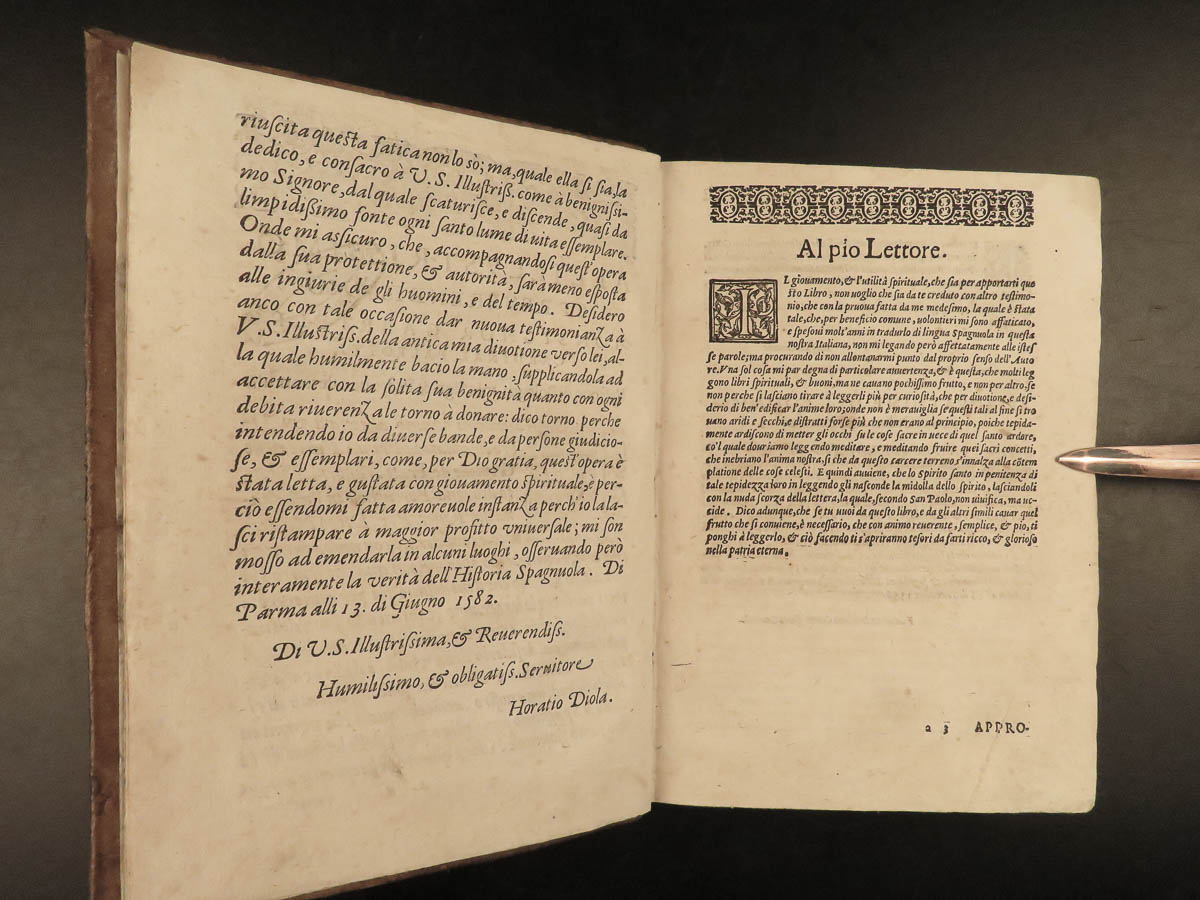 riuſcita queſta fatica non lo sò; ma, quale ella ſi ſia, la
dedico, e conſacro à V.S. Illuſtriſſ. come à benigniſſi-
mo Signore, dal quale ſcaturiſce, e diſcende, quaſi da
limpidiſſimo fonte ogni ſanto lume di uita eſſemplare.
Onde mi aſſicuro, che, accompagnandoſi queſt'opera
dalla ſua protettione, & autorità, ſarà meno eſpoſta
alle ingiurie de gli huomini, e del tempo. Deſidero
anco con tale occaſione dar nuoua teſtimonianza à
V.S. Illuſtriſſ. della antica mia diuotione verſo lei, al-
la quale humilmente bacio la mano, ſupplicandola ad
accettare con la ſolita ſua benignità quanto con ogni
debita riuerenza le torno à donare: dico torno perche
intendendo io da diuerſe bande, e da perſone giudicio-
ſe, & eſſemplari, come, per Dio gratia, queſt'opera è
ſtata letta, e guſtata con giouamento ſpirituale, e per-
ciò eſſendomi fatta amoreuole inſtanza perch'io la la-
ſci riſtampare à maggior profitto vniuerſale; mi ſon
moſſo ad emendarla in alcuni luoghi, oſſeruando però
interamente la verità dell'Hiſtoria Spagnuola. Di
Parma alli 13. di Giugno 1582.
Di V.S. Illuſtriſſima, & Reuerendiſſ.
Humiliſſimo, & obligatiſſ. Seruitore
Horatio Diola.
Al pio Lettore.
IL giouamento, & l'utilità ſpirituale, che ſia per apportarti que
ſto Libro, non uoglio che ſia da te creduto con altro teſtimo-
nio, che con la pruoua fatta da me medeſimo, la quale è ſtata
tale, che, per beneficio comune, volontieri mi ſono affaticato,
e ſpeſoui molt'anni in tradurlo di lingua Spagnuola in queſta
noſtra Italiana, non mi legando però affettatamente alle iſteſ
ſe parole; ma procurando di non allontanarmi punto dal proprio ſenſo dell'Auto
re. Vna ſol coſa mi par degna di particolare auuertenza, & è queſta, che molti leg
gono libri ſpirituali, & buoni, ma ne cauano pochiſſimo frutto, e non per altro, ſe
non perche ſi laſciano tirare à leggerli più per curioſità, che per diuotione, e deſi-
derio di ben'edificar l'anime loro; onde non è merauiglia ſe queſti tali al fine ſi tro
uano aridi e ſecchi, e diſtratti forſe più che non erano al principio, poiche tepida-
mente ardiſcono di metter gli occhi ſu le coſe ſacre in uece di quel ſanto ardore,
co'l quale douriamo leggendo meditare, e meditando fruire quei ſacri concetti,
che inebriano l'anima noſtra, ſi che da queſto carcere terreno s'innalza alla cōtem
platione delle coſe celeſti. E quindi auuiene, che lo Spirito ſanto in penitenza di
tale tepidezza loro in leggendo gli naſconde la midolla dello ſpirito, laſciandoli
con la nuda ſcorza della lettera, la quale, ſecondo San Paolo, non uiuifica, ma uc-
cide. Dico adunque, che ſe tu uuoi da queſto libro, e da gli altri ſimili cauar quel
frutto che ſi conuiene, è neceſſario, che con animo reuerente, ſemplice, & pio, ti
ponghi à leggerlo, & ciò facendo ti s'apriranno teſori da farti ricco, & glorioſo
nella patria eterna.
a 3 APPRO-